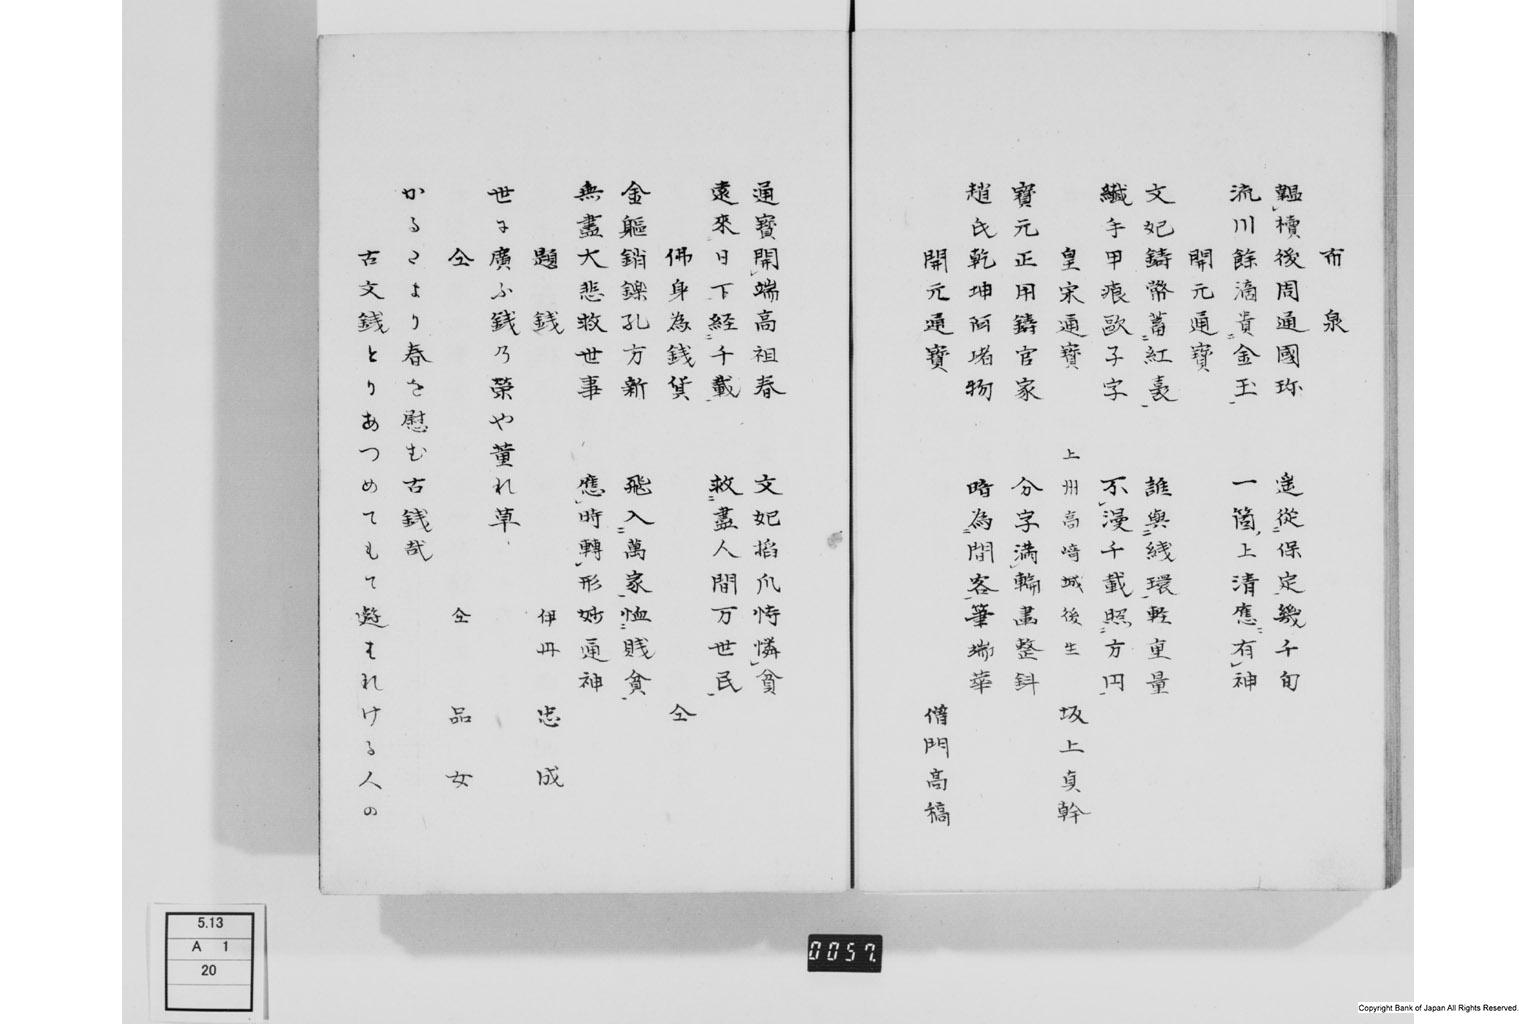 布泉
韞櫝後周通國珎　遥從保定幾千旬
流川餘滴貴金玉　一箇上清應有神
開元通寳
文妃鋳幣蓄紅裹　誰與綫環軽重量
纎手甲痕歐子字　不漫千載照方円
皇宋通寳　上州高崎城後生　坂上貞幹
寳元正用鋳官家　分字満輪畫整斜
趙氏乾坤阿堵物　時為閒客筆端華
開元通寳　僧門高稿
通寳開端高祖春　文妃搯爪恃憐貧
遠來日下経千載　救盡人間万世民
佛身為銭貨　仝
金軀銷鑠孔方新　飛入萬家恤賎貧
無盡大悲救世事　應時轉形妙通神
題銭　伊丹　忠成
世に廣ふ銭乃榮や菫れ草
仝　仝　品女
かるさより春を慰む古銭哉
古文銭とりあつめてもて遊はれける人の
5.13
A 1
20
0057.
Copyright Bank of Japan All Rights Reserved.